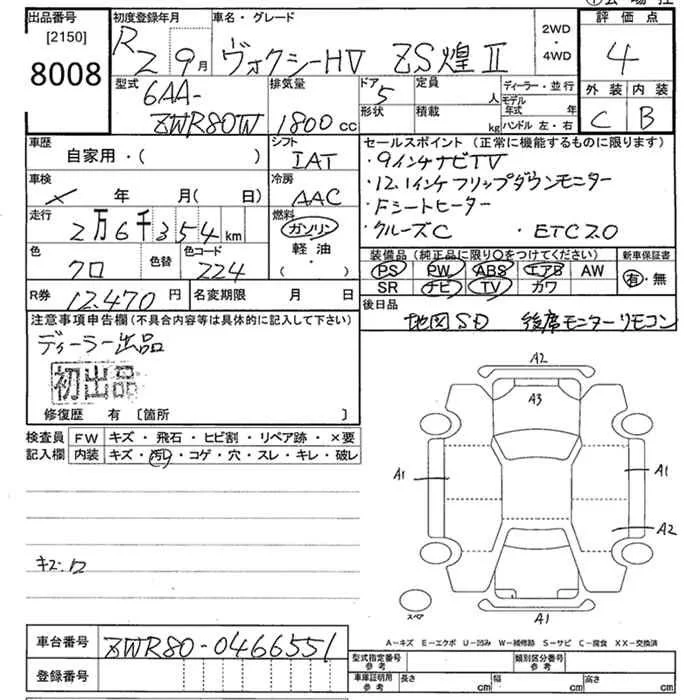 出品番号 初度登録年月 車名・グレード 2WD・4WD 評価点
[2150] 8008 R2 9月 ヴォクシーHV ZS煌II 4
型式 排気量 ドア 形状 定員 人 積載 kg ディーラー・並行 モデル年式 年 ハンドル 左・右 外装 内装
6AA-ZWR80W 1800cc 5 C B
車歴 シフト セールスポイント (正常に機能するものに限ります)
自家用・( ) IAT ・9インチナビTV
車検 冷房 ・12.1インチフリップダウンモニター
× 年 月( 日) AAC ・Fシートヒーター
走行 燃料 クルーズC ・ETC2.0
2万6千354km ガソリン 軽油 ・( )
装備品 (純正品に限り○をつけてください) 新車保証書
色 色替 色コード PS PW ABS エアB AW 有・無
クロ 224 SR ナビ TV カワ
R券 12,470円 名変期限 月 日 後日品
地図SD 後席モニターリモコン
注意事項申告欄(不具合内容等は具体的に記入して下さい)
ディーラー出品
初出品
修復歴 有 [箇所 ]
検査員 FW キズ・飛石・ヒビ割・リペア跡・×要
記入欄 内装 キズ・汚れ・コゲ・穴・スレ・キレ・破レ
A2
A3
A1 A1
A2
スペア A1
A-キズ E-エクボ U-凹み W-補修跡 S-サビ C-腐食 XX-交換済
車台番号 ZWR80-0466551 型式指定番号 参考 類別区分番号 参考
登録番号 車庫証明用 参考 長さ cm 幅 cm 高さ cm